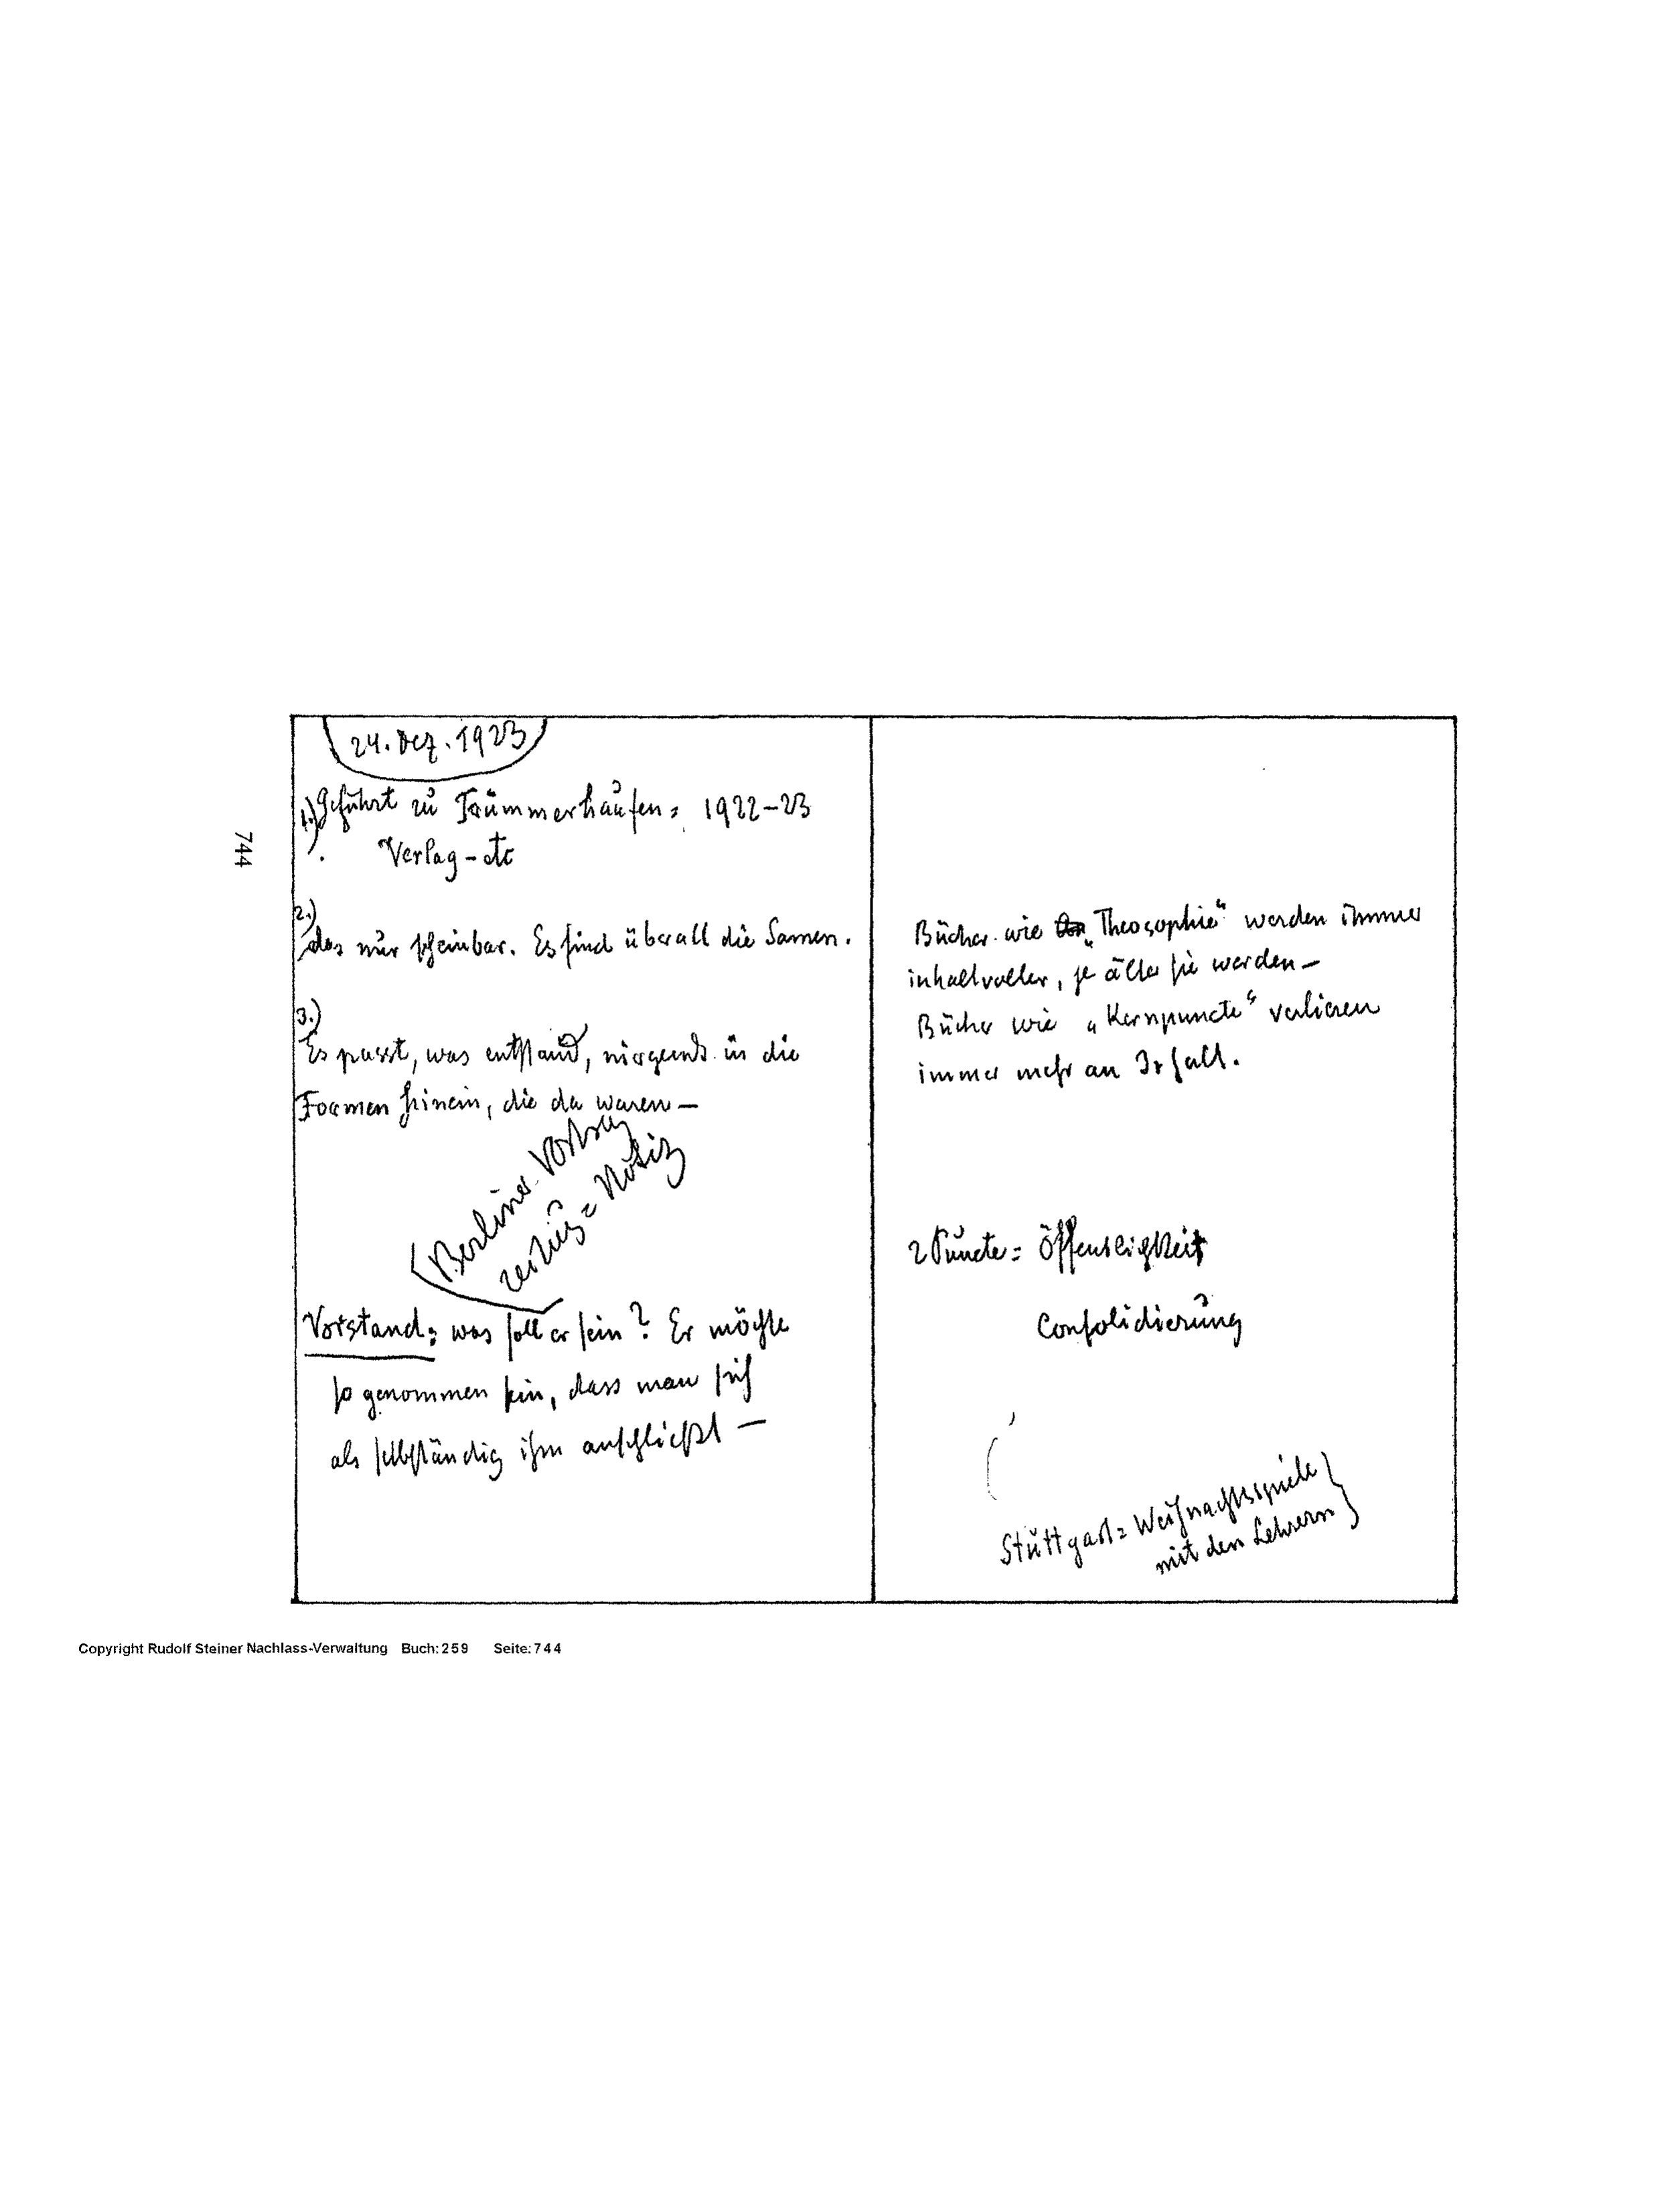 24. Dez. 1923
1.) Geführt zu Trümmerhaufen = 1922–23
Verlag – etc
2.)
das nur scheinbar. Es sind überall die Samen.
3.)
Es passt, was entstand, nirgends in die
Formen hinein, die da waren –
(Berliner Vortrag
Notiz
Vorstand: was soll er sein? Er möchte
so genommen sein, dass man sich
als selbständig ihm anschließt –
Bücher wie „Theosophie“ werden immer
inhaltvoller, je älter sie werden –
Bücher wie „Kernpuncte“ verlieren
immer mehr an Inhalt.
2 Puncte = Öffentlichkeit
Consolidierung
Stuttgart = Weihnachtsspiele
mit den Lehrern
744
Copyright Rudolf Steiner Nachlass-Verwaltung Buch: 259 Seite: 744